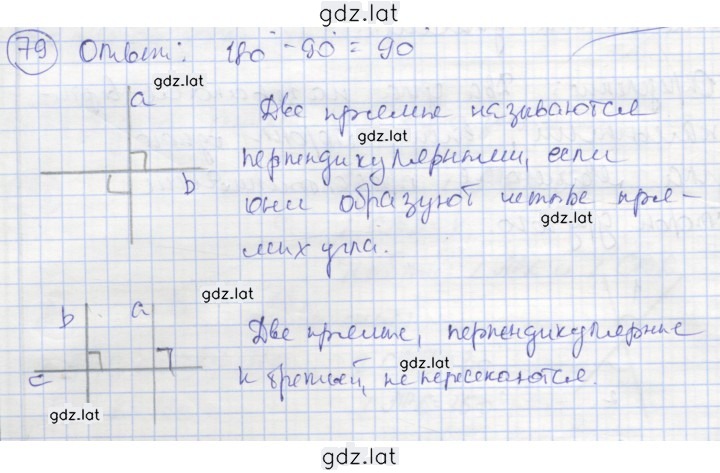 gdz.lat
79 Ответ: 180° - 90° = 90°
gdz.lat
gdz.lat
a
Две прямые называются
gdz.lat
перпендикулярными, если
b
они образуют четыре пря-
gdz.lat
gdz.lat
мых угла.
gdz.lat
gdz.lat
b a
Две прямые, перпендикулярные
c
gdz.lat
к третьей, не пересекаются.
gdz.lat
gdz.lat
gdz.lat